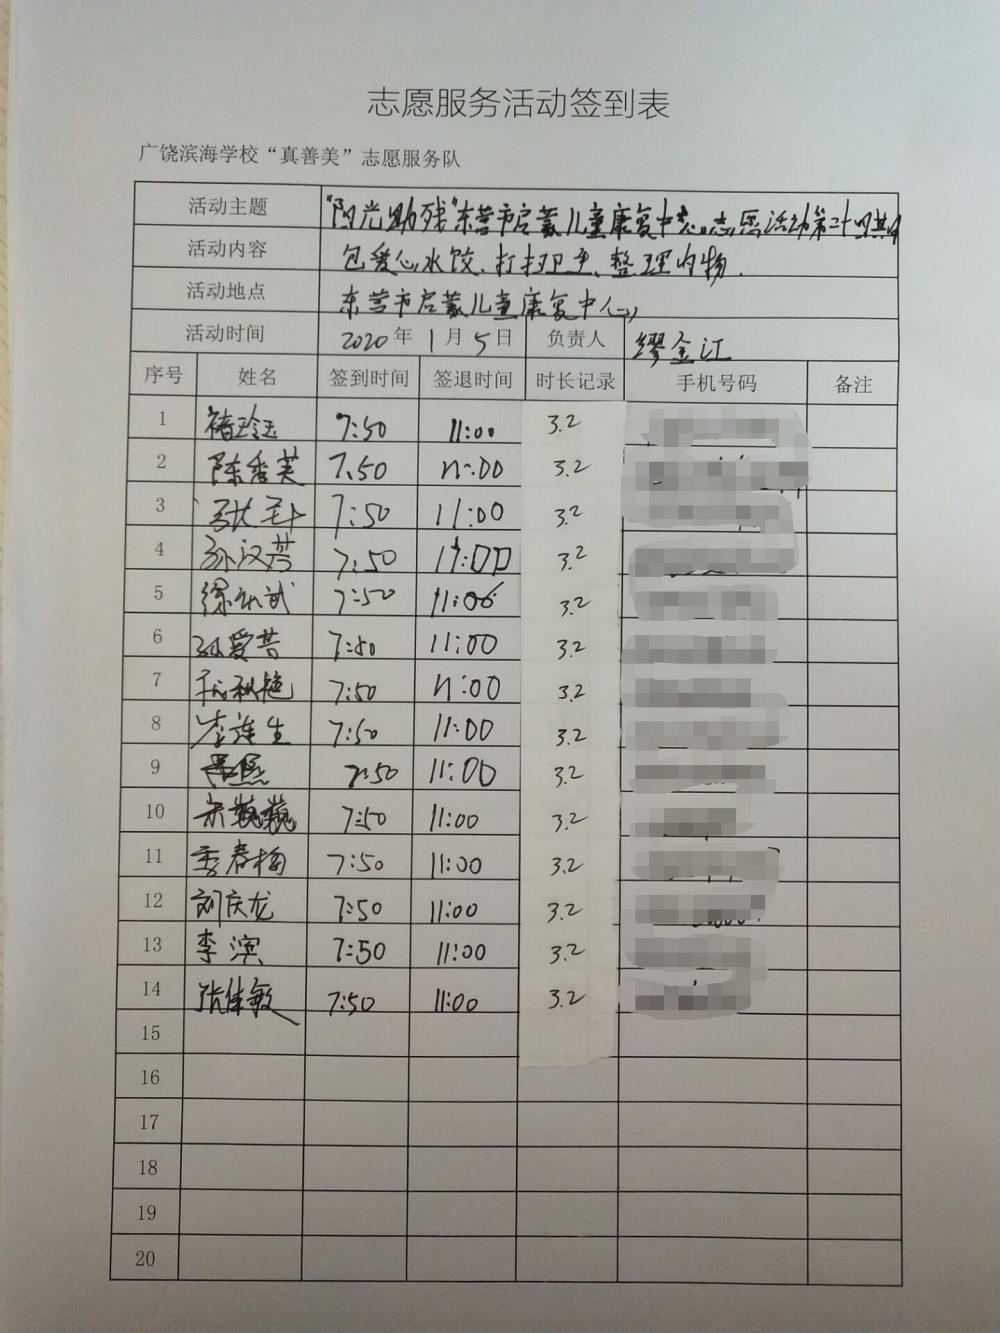 志愿服务活动签到表
广饶滨海学校“真善美”志愿服务队
活动主题 “阳光助残”东营市启蒙儿童康复中心志愿活动第二十四期
活动内容 包爱心水饺、打扫卫生、整理内物.
活动地点 东营市启蒙儿童康复中心
活动时间 2020年1月5日 负责人 缪金江
序号 姓名 签到时间 签退时间 时长记录 手机号码 备注
1 褚玲玉 7:50 11:00 3.2
2 陈秀芙 7:50 11:00 3.2
3 7:50 11:00 3.2
4 孙汉芬 7:50 11:00 3.2
5 7:50 11:00 3.2
6 孙爱芸 7:50 11:00 3.2
7 7:50 11:00 3.2
8 李连生 7:50 11:00 3.2
9 7:50 11:00 3.2
10 宋巍巍 7:50 11:00 3.2
11 季春梅 7:50 11:00 3.2
12 刘庆龙 7:50 11:00 3.2
13 李滨 7:50 11:00 3.2
14 张佳敏 7:50 11:00 3.2
15
16
17
18
19
20